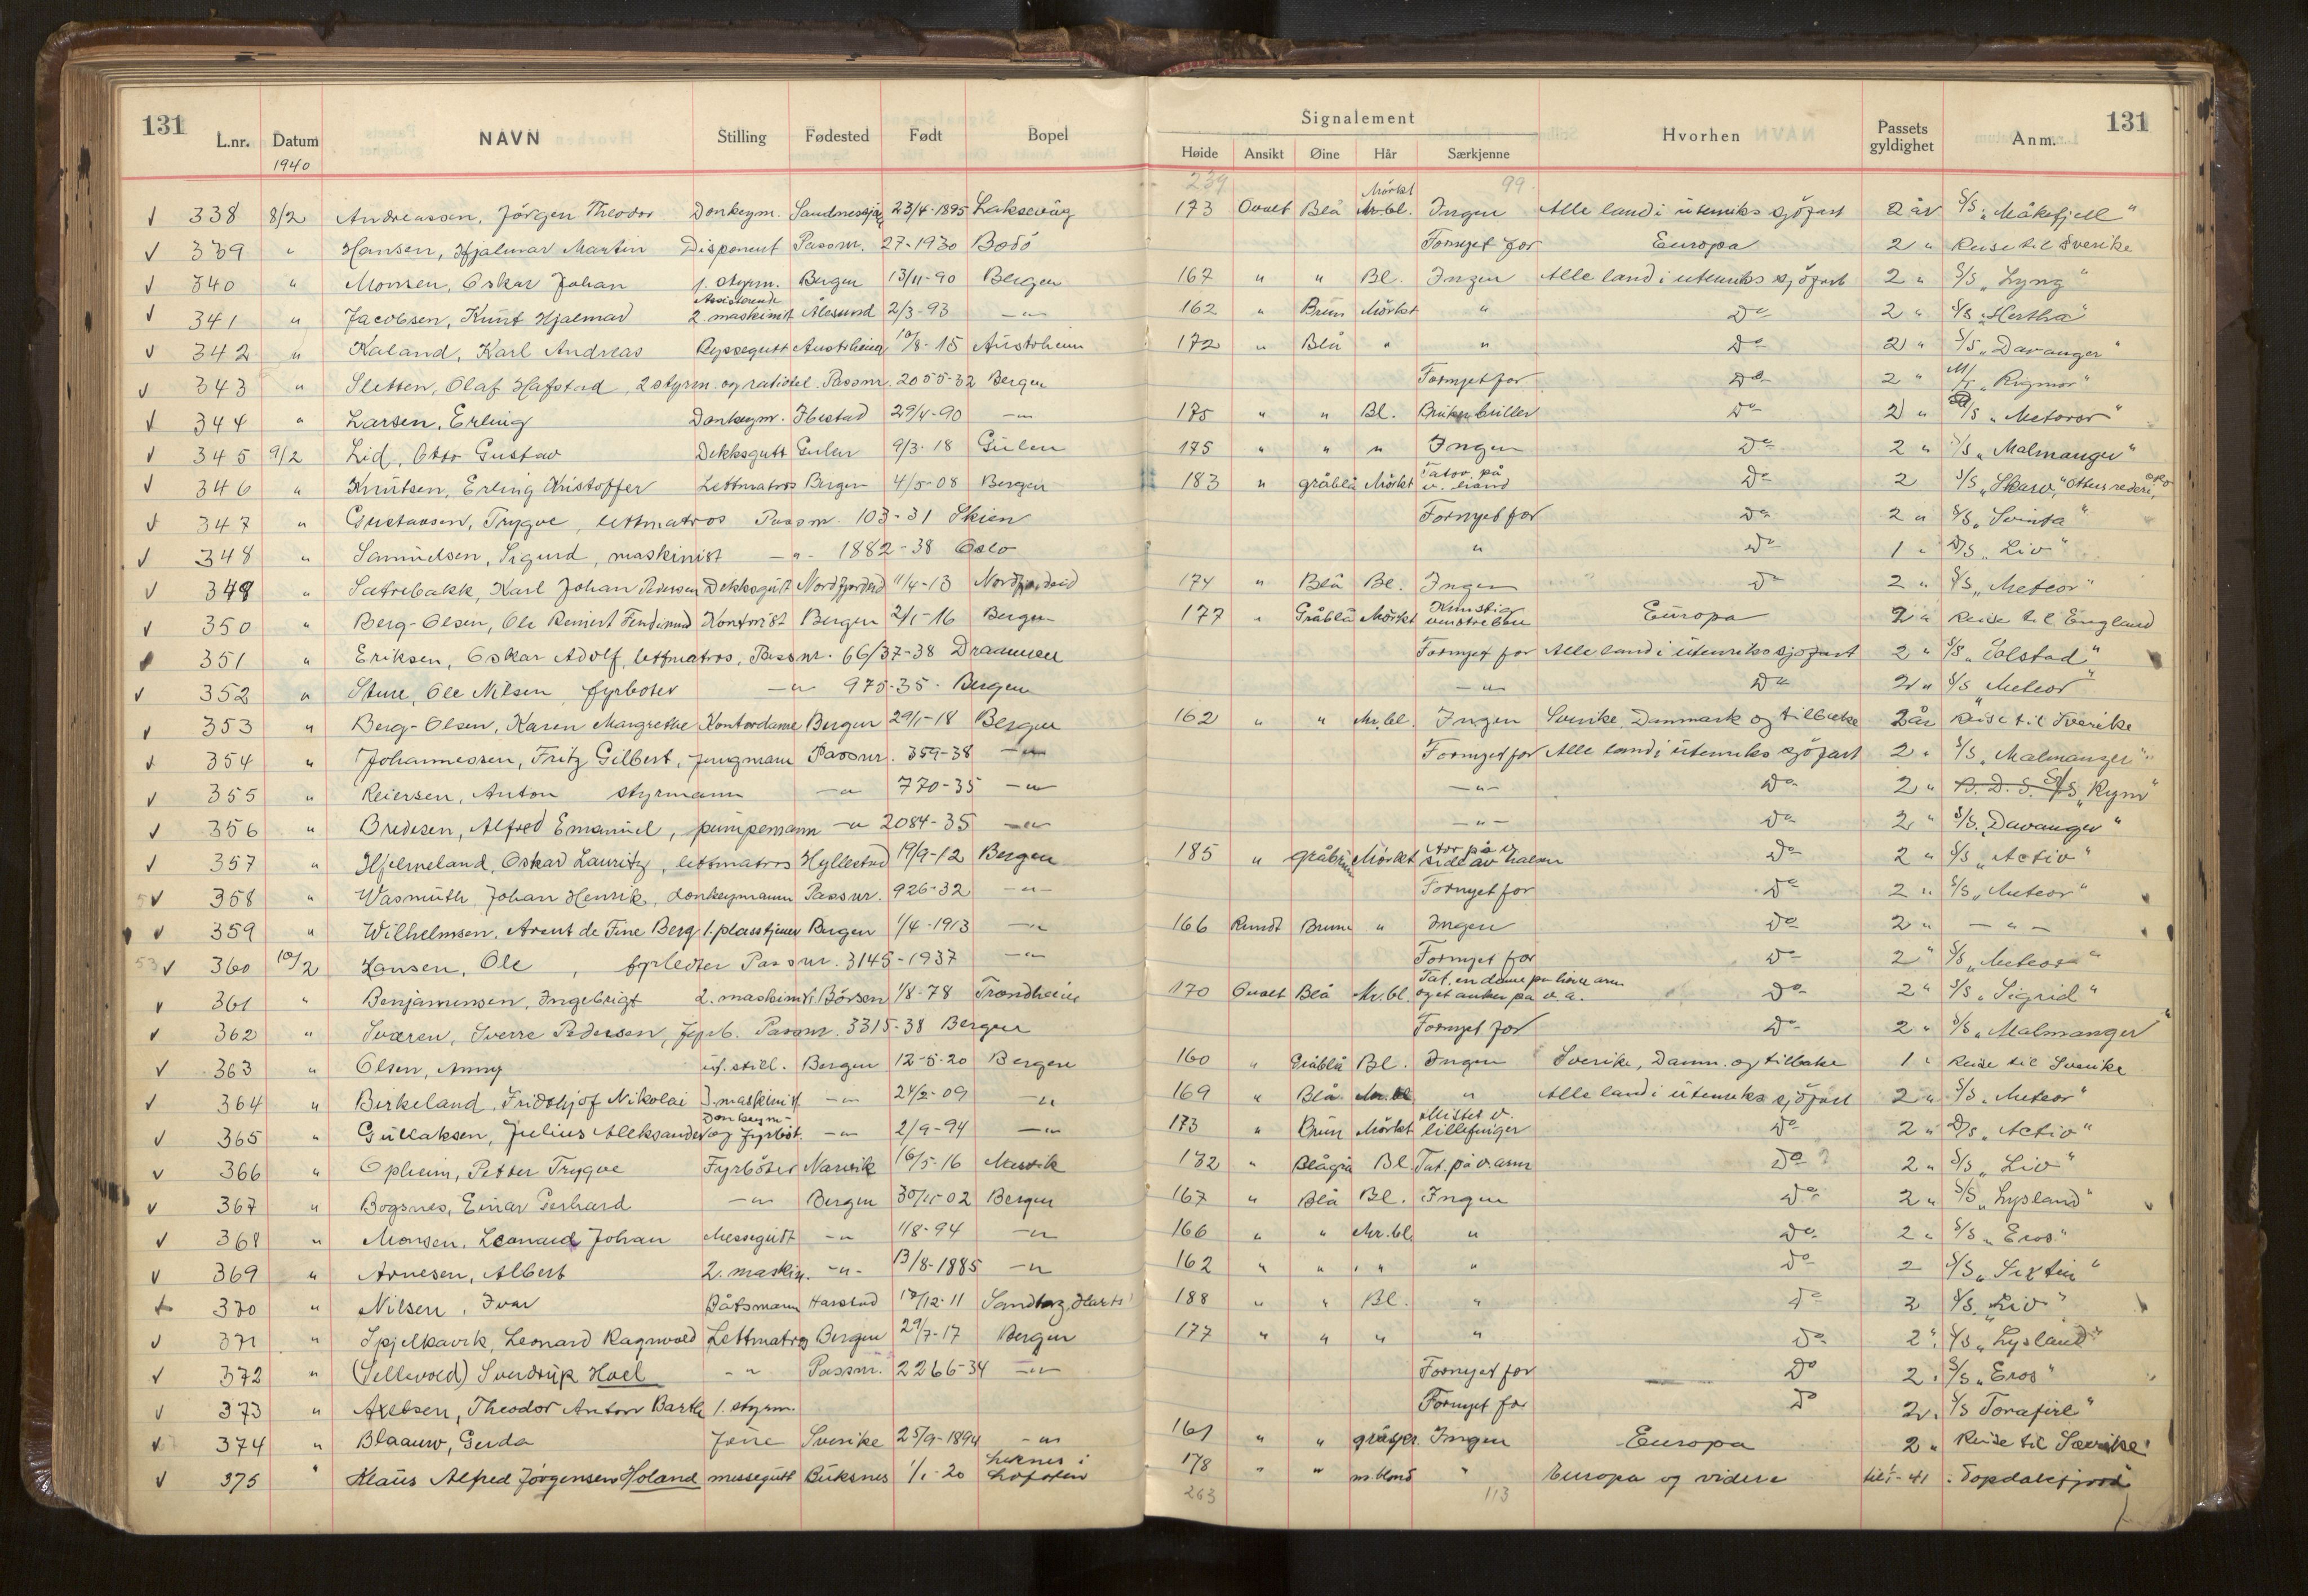 131 L.nr. Datum NAVN Stilling Fødested Født Bopel Signalement Hvorhen Passets gyldighet Anm. 131
1940 Høide Ansikt Øine Hår Særkjenne
239 99
338 8/2 Andreassen, Jörgen Theodor Donkeym. Sandnessjø 23/4-1895 Laksevåg 173 Ovalt Blå Mörkt Mr.bl. Ingen Alle land i utenriks sjöfart 2 år S/S „Måkefjell"
339 " Hansen, Hjalmar Martin Disponent Passnr. 27-1930 Bodö Fornyet for Europa 2 " Reise til Sverike
340 " Monsen, Oskar Johan 1. styrm. Bergen 13/11-90 Bergen 167 " " Bl. Ingen Alle land i utenriks sjöfart 2 " S/S „Lyng"
341 " Jacobsen, Knut Hjalmar Assisterende 2. maskinist Ålesund 2/3-93 -"- 162 " Brun Mörkt " Do 2 " S/S „Hertha"
342 " Kaland, Karl Andreas Byssegutt Austrheim 10/8-15 Austrheim 172 " Blå " " Do 2 " S/S „Davanger"
343 " Sletten, Olaf Hafstad, 2 styrm. og ratiotel. Passnr. 2055-32 Bergen Fornyet for Do 2 " M/T „Rigmor"
344 " Larsen, Erling Donkeym. Ibestad 29/4-90 -"- 175 " " Bl. Bruker briller Do 2 " S/S „Meteror"
345 9/2 Lid, Otto Gustav Dekksgutt Gulen 9/3-18 Gulen 175 " " " Ingen Do 2 " S/S „Malmanger"
346 " Knutsen, Erling Kristoffer Lettmatros Bergen 4/5-08 Bergen 183 " gråblå Mörkt Tatov. på v. hånd Do 2 S/S „Skaro," Ottens rederi, Oslo
347 " Gustavsen, Trygve, lettmatros Passnr. 103-31 Skien Fornyet for Do 2 " S/S „Svinta"
348 " Samuelsen, Sigurd, maskinist -"- 1882-38 Oslo " Do 1 " D/S „Liv"
349 " Satrebakk, Karl Johan Pedersen Dekksgutt Nordfjordeid 11/4-13 Nordfjordeid 174 " Blå Bl. Ingen Do 2 " S/S „Meteor"
350 " Berg-Olsen, Ole Reinert Ferdinand Kontorist Bergen 2/1-16 Bergen 177 " Gråblå Mörkt Kunstig venstreben Europa 2 " Reise til England
351 " Eriksen, Oskar Adolf, lettmatros, Passnr. 66/37-38 Drammen Fornyet for Alle land i utenriks sjöfart 2 " S/S „Tolstad"
352 " Sture, Ole Nilsen, fyrböter -"- 975-35. Bergen -"- Do 2 " S/S „Meteor"
353 " Berg-Olsen, Karen Margrethe Kontordame Bergen 29/1-18 Bergen 162 " " Mr.bl. Ingen Sverike, Danmark og tilbake 2 år Reise til Sverike
354 " Johannessen, Fritz Gilbert, jungmann Passnr. 359-38 -"- Fornyet for Alle land i utenriks sjöfart 2 " S/S „Malmanger"
355 " Reiersen, Anton styrmann -"- 770-35 -"- -"- Do 2 " B. D. S. S/S „Rym"
356 " Bredesen, Alfred Emanuel, pumpemann -"- 2084-35 -"- -"- Do 2 " S/S. „Davanger"
357 " Hjelmeland, Oskar Lauritz, lettmatros Hyllestad 19/9-12 Bergen 185 " gråbrun Mörkt Arr på v. side av halsen Do 2 " S/S „Activ"
358 " Wasmuth, Johan Henrik, donkeymann Passnr. 926-32 -"- Fornyet for Do 2 " S/S „Meteor"
359 " Wilhelmsen, Arent de Fine Berg 1. plasstjener Bergen 1/4-1913 -"- 166 Rundt Brune " Ingen Do 2 " -"-
53 360 10/2 Hansen, Ole, fyrböter Passnr. 3145-1937 -"- Fornyet for Do 2 " S/S „Meteor"
361 " Benjaminsen, Ingebrigt 2. maskinist Börsen 1/8-78 Trondheim 170 Ovalt Blå Mr.bl. Tat. en dame på höire arm og et anker på v. a. Do 2 " S/S „Sigrid"
362 " Sværen, Sverre Pedersen, fyrb. Passnr. 3315-38 Bergen Fornyet for Do 2 " S/S „Malmanger"
363 " Olsen, Anny uf. still. Bergen 12-5-20 Bergen 160 " Gråblå Bl. Ingen Sverike, Danm. og tilbake 1 " Reise til Sverike
364 " Birkeland, Fridthjof Nikolai 3. maskinist -"- 24/2-09 -"- 169 " Blå Mr.bl. " Alle land i utenriks sjöfart 2 " S/S „Meteor"
365 " Gullaksen, Julius Aleksander Donkeym. og fyrböt. -"- 2/9-94 -"- 173 " Brun Mörkt Mistet v. lillefinger Do 2 " D/S „Activ"
366 " Opheim, Petter Trygve Fyrböter Narvik 16/5-16 Narvik 182 " Blågrå Bl. Tat. på v arm Do ? 2 " S/S „Liv"
367 " Bogsnes, Einar Gerhard -"- Bergen 30/11-02 Bergen 167 " Blå Bl. Ingen Do 2 " S/S „Lysland"
368 " Monsen, Leonard Johan Messegutt -"- 1/8-94 -"- 166 " " Mr.bl. " Do 2 " S/S „Eros"
369 " Arnesen, Albert 2. maskin. -"- 13/8-1885 -"- 162 " " " " Do 2 S/S „Sixtin"
370 " Nilsen, Ivar Båtsmann Harstad 17/12-11 Sandtorg, Harst. 188 " " Bl. " Do 2 S/S. „Liv"
371 " Spjelkavik, Leonard Ragnvald Lettmatros Bergen 29/7-17 Bergen 177 " " " " Do 2 " S/S „Lysland"
372 " (Sellevold) Sverdrup Hoel -"- Passnr. 2266-34 -"- Fornyet for Do 2 " S/S „Eros"
373 " Axelsen, Theodor Anton Barth 1. styrm. Fornyet for Do 2 " S/S Torafire"
374 " Blaauw, Gerda Frue Sverike 25/9-1894 -"- 161 " " gråspr. Ingen Europa 2 " Reise til Sverike!
375 " Klaus Alfred Jörgensen Holand messegutt Buksnes 1/1-20 Leknes i Lofoten 178 " " m.blond " Europa og videre til 1/1-41 „Topdalsfjord"
263 113